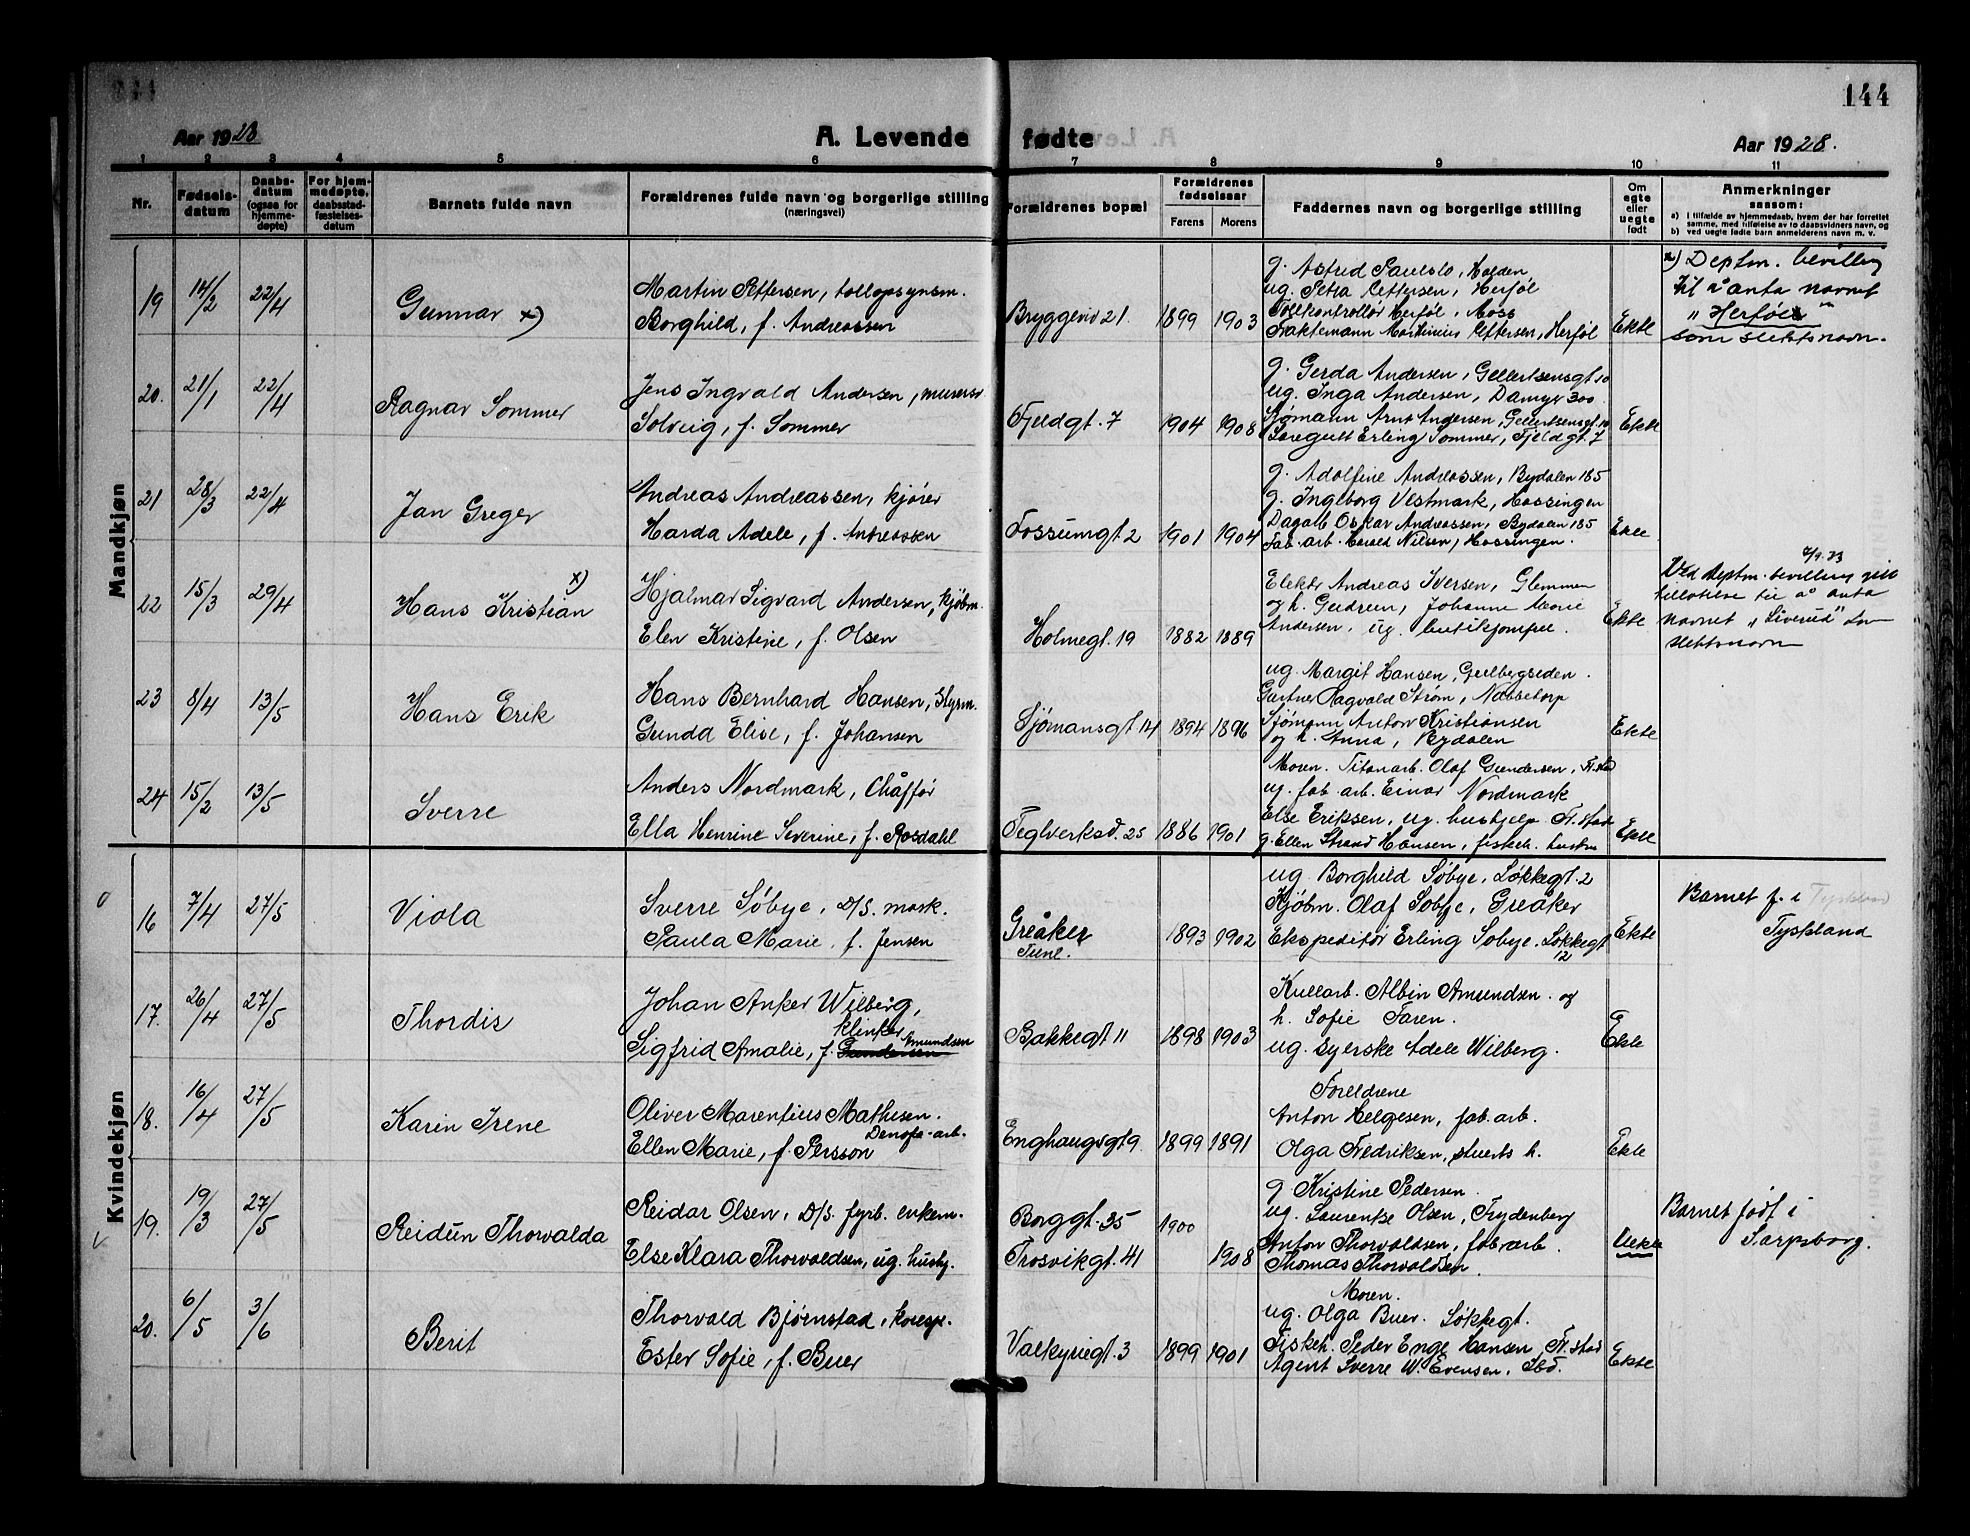 144
Aar 1928
A. Levende fødte
Aar 1928.
1 2 3 4 5 6 7 8 9 10 11
Nr.
Fødselsdatum
Daabsdatum (ogsaa for hjemmedøpte)
For hjemmedøpte, daabsstadfæstelsesdatum
Barnets fulde navn
Forældrenes fulde navn og borgerlige stilling (næringsvei)
Forældrenes bopæl
Forældrenes fødselsaar
Farens Morens
Faddernes navn og borgerlige stilling
Om egte eller uegte født
Anmerkninger saasom:
a) i tilfælde av hjemmedaab, hvem der har forrettet samme, med tilføielse av to daabsvidners navn, og
b) ved uegte fødte barn anmelderens navn m. v.
Mandkjøn
19 14/2 22/4 Gunnar x)
Martin Pettersen, tollopsynsm.
Borghild, f. Andreassen
Bryggeriv 21. 1899 1903
g. Astrid Paulsbo, Halden
ug. Petra Pettersen, Herføl
Tollkontrollør Herføl, Moss
Fraktemann Martinius Pettersen, Herføl
Ekte
x) Deptm. bevilling
til å anta navnet
"Herføl"
som slektsnavn.
20. 21/1 22/4 Ragnar Sommer
Jens Ingvald Andersen, murer
Solveig, f. Sommer
Fjeldgt. 7 1904 1908
g. Gerda Andersen, Gellertsensgt 10
ug. Inga Andersen, Damyr 300
Sjømann Arnt Andersen, Gellertsensgt 10
Erling Sommer, Fjeldgt. 7
Ekte
21 28/3 22/4 Jan Greger
Andreas Andreassen, kjører
Harda Adele, f. Andreassen
Fossumgt 2 1901 1904
g. Adolfine Andreassen, Bydalen 185
g. Ingeborg Vestmark, Hassingen
Dagarb Oskar Andreassen, Bydalen 185
Fab. arb. Harald Nilsen, Hassingen.
Ekte
22 15/3 29/4 Hans Kristian x)
Hjalmar Sigvard Andersen, kjøbm.
Elen Kristine, f. Olsen
Holmegt. 19 1882 1889
Elektr Andreas Iversen, Glemmen
og h. Gudrun, Johanne Marie
Andersen, ug. butikjomfru.
Ekte
Ved Deptm. bevilling
tillatelse til å anta
navnet "Siverud" som
slektsnavn
23 8/4 13/5 Hans Erik
Hans Bernhard Hansen, Styrm.
Gunda Elise, f. Johansen
Sjømansgt 14 1894 1896
ug. Margit Hansen, Gulbergsiden.
Gartner Ragvald Strøm, Nabbetorp
Sjømann Anton Kristiansen
og h. Anna, Bydalen
Ekte
24 15/2 13/5 Sverre
Anders Nordmark, Chåffør
Ella Henrine Severine, f. Rosdahl
Teglverksd. 25 1886 1901
Moren. Titanarb. Olaf Gundersen, Fr.stad
ug. fab arb. Einar Nordmark
Else Eriksen, ug. hushjelp Fr. stad
g. Ellen Strand Hansen, fiskeh. hustru
Ekte
Kvindekjøn
16 7/4 27/5 Viola
Sverre Søbye, D/S. mask.
Paula Marie, f. Jensen
Greåker
Tune. 1893 1902
ug. Borghild Søbye, Løkkegt. 2
Kjøbm. Olaf Søbye, Greåker
Ekspeditør Erling Søbye. Løkkegt 12
Ekte
Barnet f. i
Tyskland
17. 26/4 27/5 Thordis
Johan Anker Wilberg,
klinker
Sigfrid Amalie, f. Gundersen Amundsen
Bakkegt 11 1898 1903
Kullarb. Albin Amundsen. og
h. Sofie Faren.
ug. syerske Adele Wilberg.
Ekte
18. 16/4 27/5 Karin Irene
Oliver Marentius Mathisen.
Denofa-arb.
Ellen Marie, f. Persson
Enghaugsgt 9 1899 1891
Foreldrene
Anton Helgesen, fab. arb.
Olga Fredriksen, stuerts h.
Ekte
19. 19/3 27/5 Reidun Thorvalda
Reidar Olsen, D/S. fyrb. enkem.
Else Klara Thorvaldsen, ug. hushj.
Borggt. 35 1900
Trosvikgt. 41 1908
g. Kristine Pedersen.
ug. Laurentze Olsen, Frydenberg
Anton Thorvaldsen, fab. arb.
Thomas Thorvaldsen.
Uekte
Barnet født i
Sarpsborg.
20. 6/5 3/6 Berit
Thorvald Bjørnstad, koresp.
Ester Sofie, f. Buer
Valkyriegt. 3 1899 1901
Moren.
ug. Olga Buer. Løkkegt.
Fiskeh. Peder Enge Hansen, Fr. stad
Agent Sverre W. Evensen,
Ekte